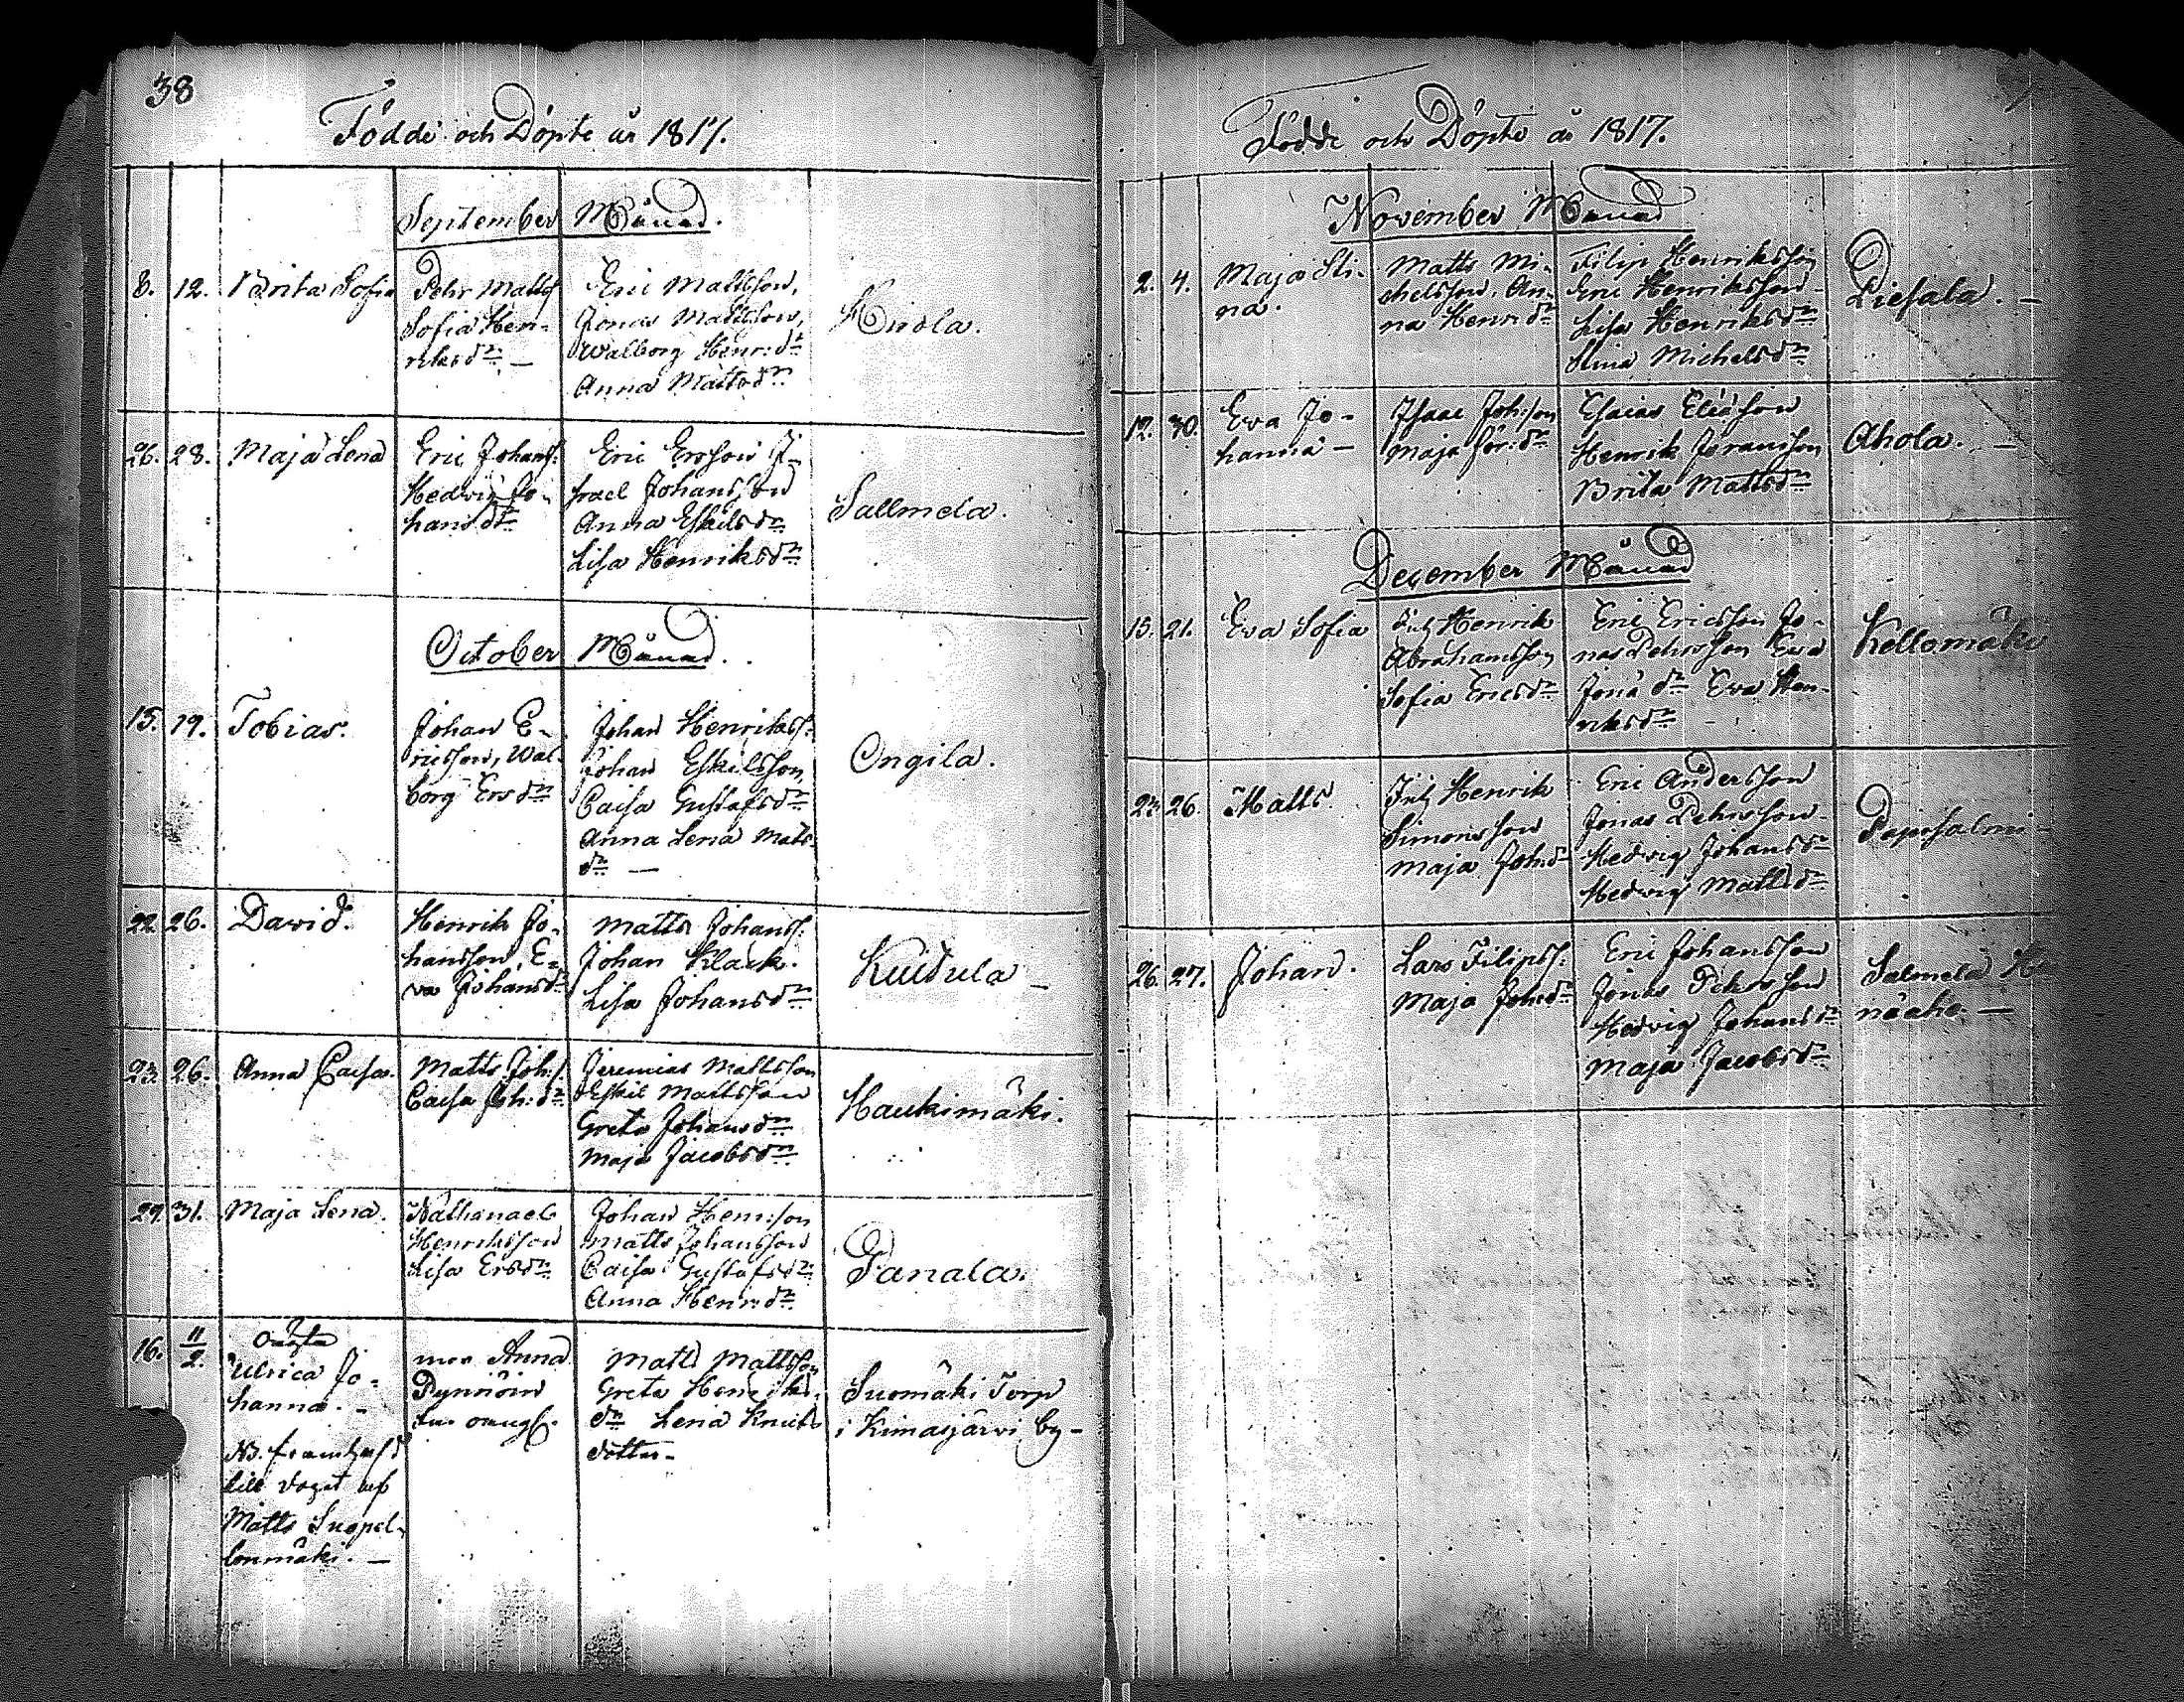 38
Födde och Döpte år 1817.
September Månad.
8. 12. Brita Sofia
Pehr Matts
Sofia Hen-
riksdr. —
Eric Mattsson,
Jonas Mattsson,
Walborg Henr:dr
Anna Mattsdr
26. 28. Maja Lena
Eric Johanss:
Hedvig Jo-
hansdr
Eric Ersson I-
srael Johansson
Anna Eskilsdr
Lisa Henriksdr
Sallmela.
October Månad.
15. 19. Tobias.
Johan E-
ricsson, Wal-
borg Ersdr
Johan Henrikss:
Johan Eskilsson,
Caisa Gustafsdr
Anna Lena Mats-
dr —
Ongila.
22. 26. David.
Henrik Jo-
hansson, E-
va Johansdr
Matts Johanss:
Johan Klack.
Lisa Johansdr
Kuudula —
23. 26. Anna Caisa.
Matts Joh:s.
Caisa Joh:dr
Jeremias Mattsson
Eskil Mattsson
Greta Johansdr
Maja Jacobsdr
Haukimäki.
29. 31. Maja Lena.
Nathanael
Henriksson
Lisa Ersdr
Johan Henr:son
Matts Johansson
Caisa Gustafsdr
Anna Henr:dr
Panala.
16. 11/2.
Oägta
Ulrica Jo-
hanna. -
mor Anna
Pynnöin
Matts Mattsson
Greta Henriks-
dr Lena Knuts
dotter-
Suomäki Torp
i Kimasjärvi by-
NB.
till dopet af
Matts Suopel-
lonmäki. —
Födde och Döpte år 1817.
November Månad
2. 4. Maja Sti-
na.
Matts Mi-
chelsson, An-
na Henr:dr
Filip Henriksson
Eric Henriksson
Lisa Henriksdr
Stina Michelsdr
Piesala. —
12. 30. Eva Jo-
hanna —
Isaac Joh:son
Maja Jör:dr
Esaias Eliasson
Henrik Jöransson
Brita Mattsdr
Ahola. —
December Månad
15. 21. Eva Sofia
Henrik
Abrahamsson
Sofia Ericsdr
Eric Ericsson Jo-
nas Pehrsson Eva
Jona dr Eva Hen-
riksdr
Kellomäki
23. 26. Matts.
Henrik
Simonsson
Maja Joh:dr
Eric Andersson
Jonas Pehrsson
Hedvig Johansdr
Hedvig Mattsdr
26. 27. Johan.
Lars Filipss:
Maja Joh:dr
Eric Johansson
Jonas Pehrsson
Hedvig Johansdr
Maja Jacobsdr
Salmela